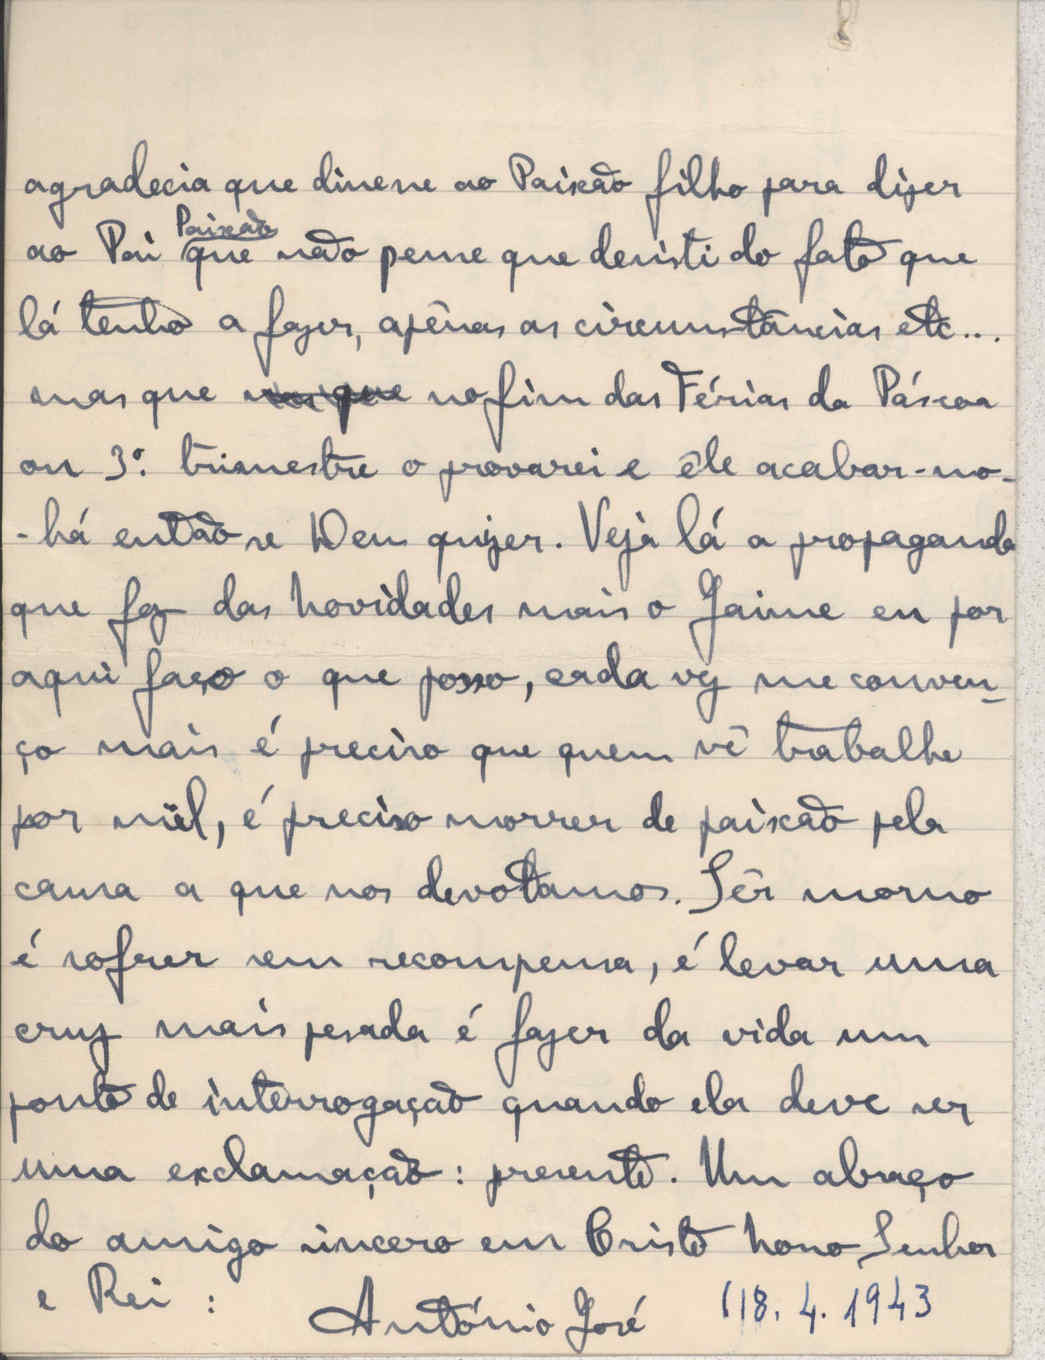 agradecia que dissesse ao Paixão filho para dizer
ao Pai Paixão que não pense que desisti do fato que
lá tenho a fazer, apênas as circunstâncias etc...
mas que no fim das Férias da Páscoa
ou 3º. trimestre o provarei e êle acabar-no-
-há então se Deus quizer. Veja lá a propaganda
que faz das Novidades mais o Jaime eu por
aqui faço o que posso, cada vez me conven-
ço mais é preciso que quem vê trabalhe
por mil, é preciso morrer de paixão pela
causa a que nos devotamos. Sêr morno
é sofrer sem recompensa, é levar uma
cruz mais pesada é fazer da vida um
ponto de interrogação quando ela deve ser
uma exclamação: presente. Um abraço
do amigo sincero em Cristo Nosso Senhor
e Rei:
António José 18.4.1943